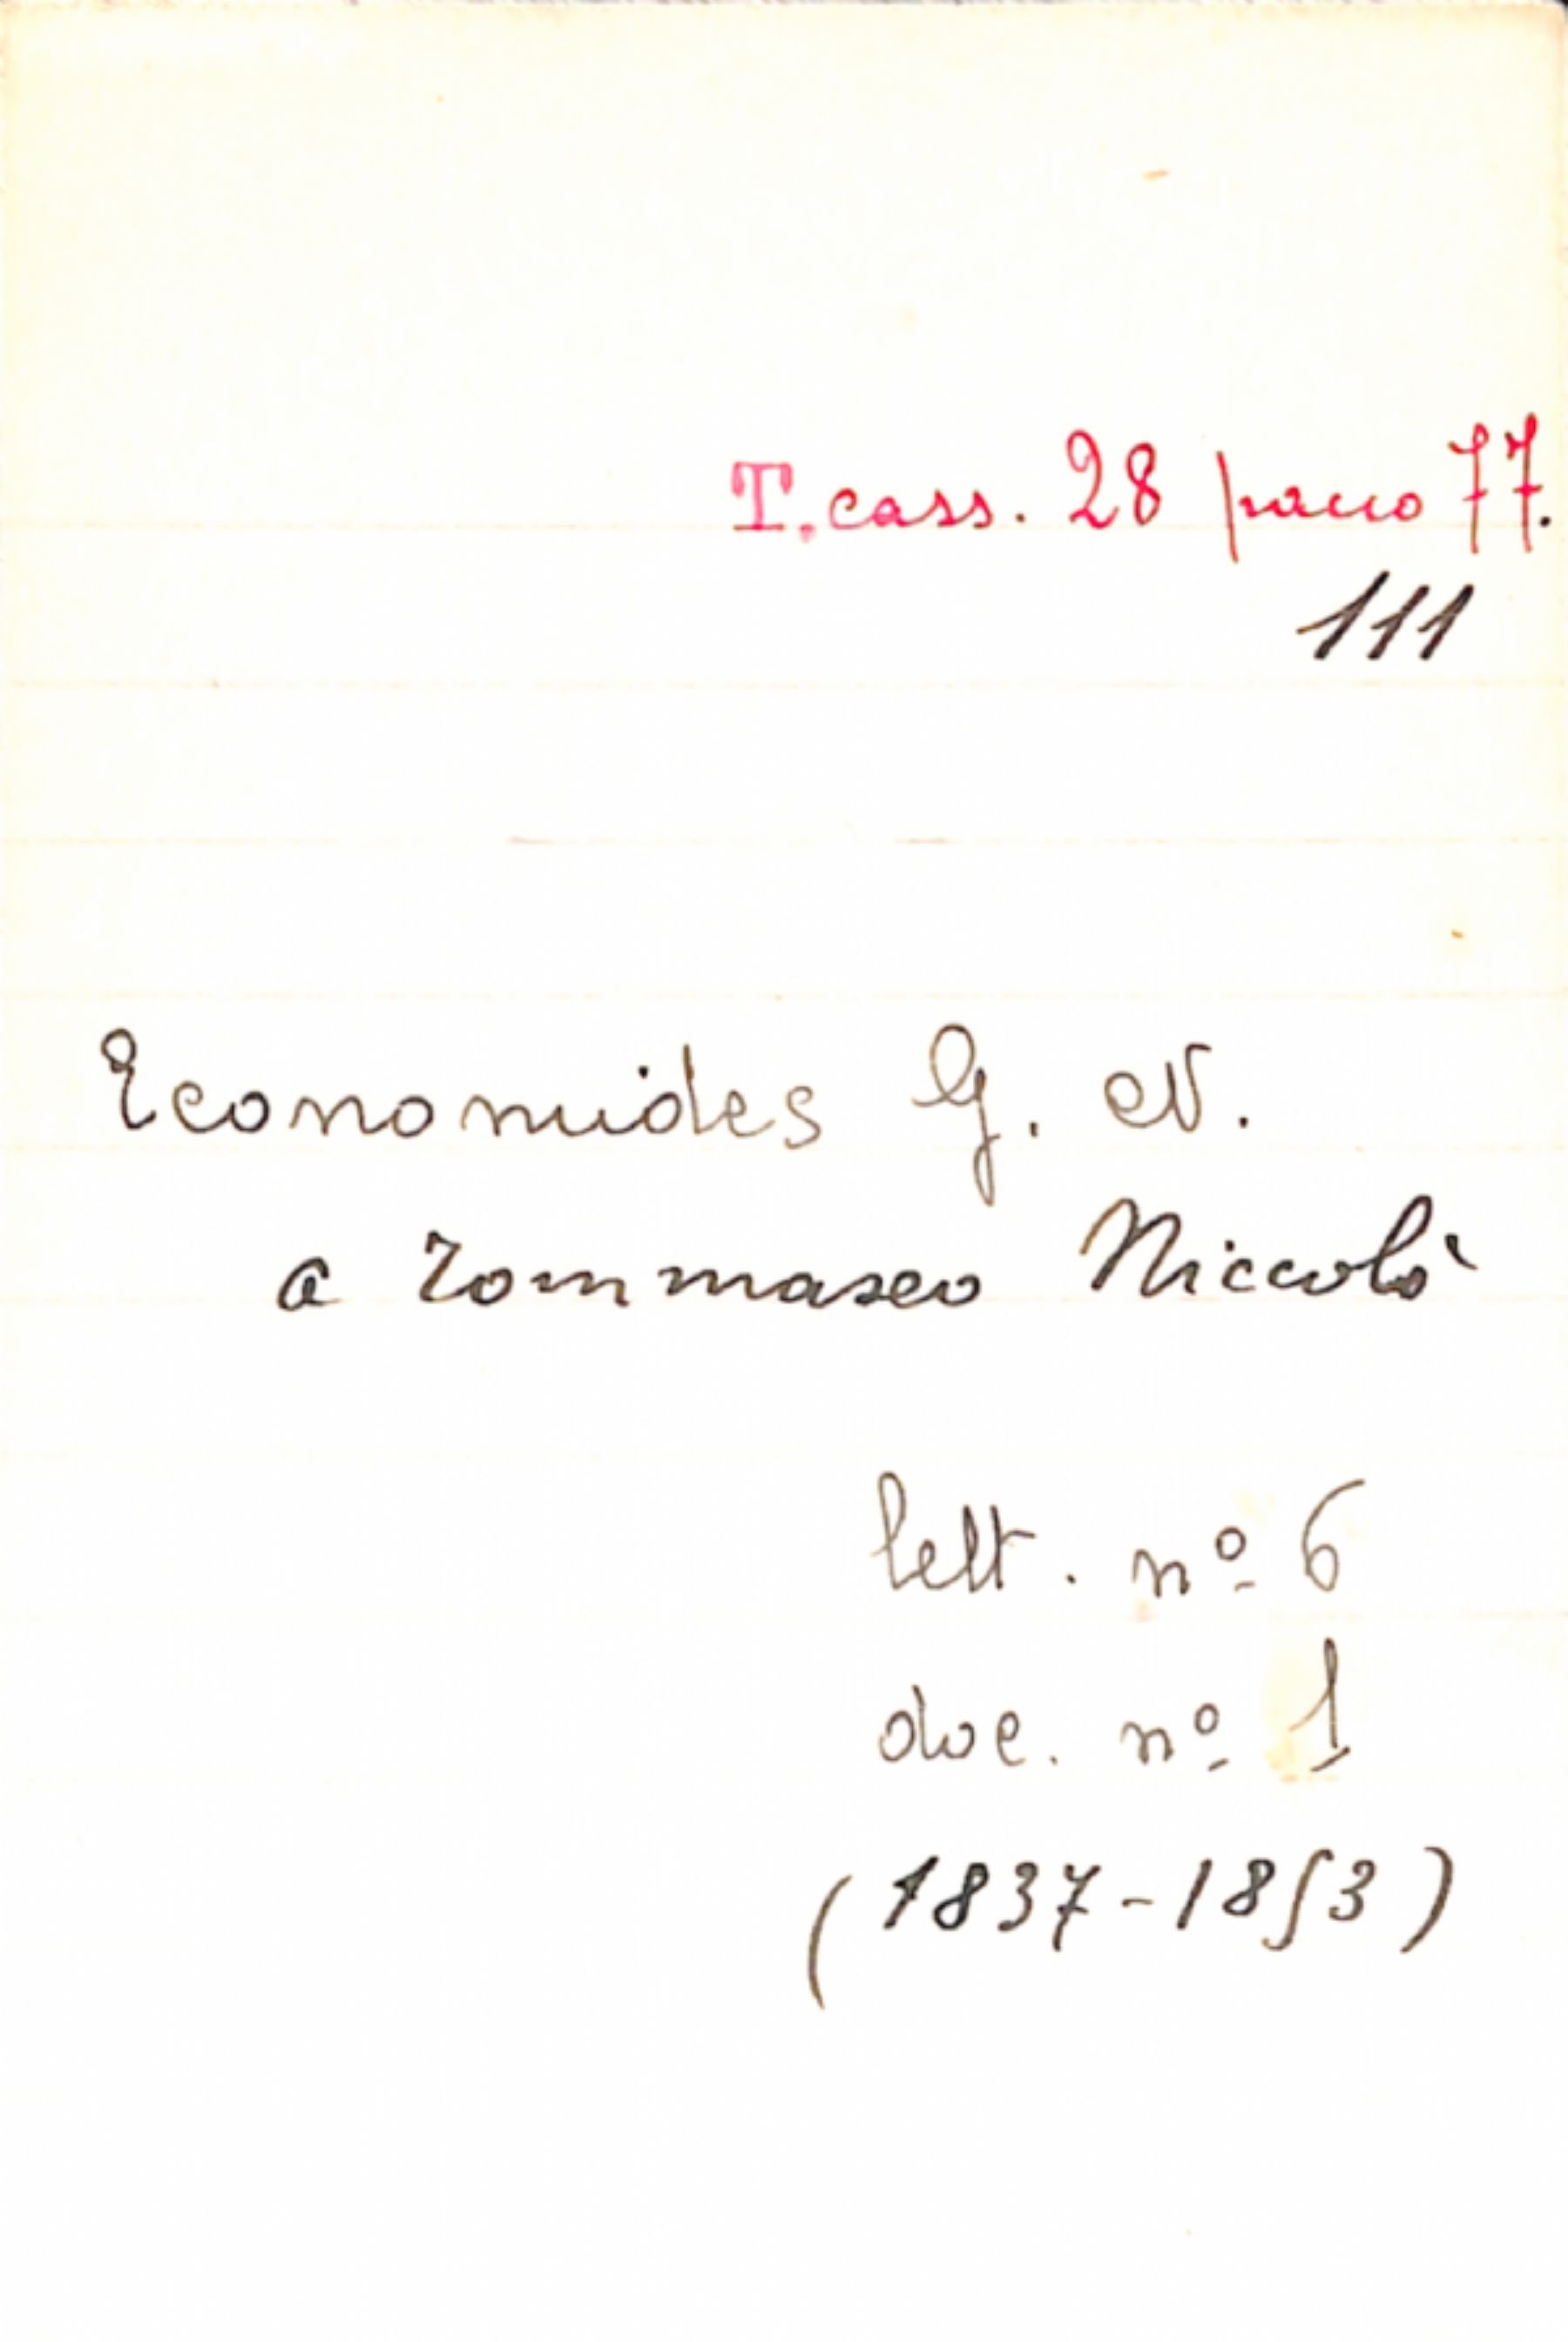 T. cass. 28 pacco 77.
111
Economides G. N.
a Tommaseo Niccolò
lett. nº 6
doc. nº 1
(1837-1853)